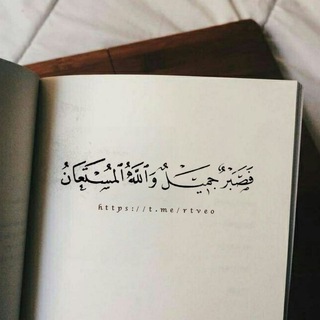 فَصَبْرٌ جَمِيلٌ وَاللَّهُ الْمُسْتَعَانُ
https://t.me/rtveo